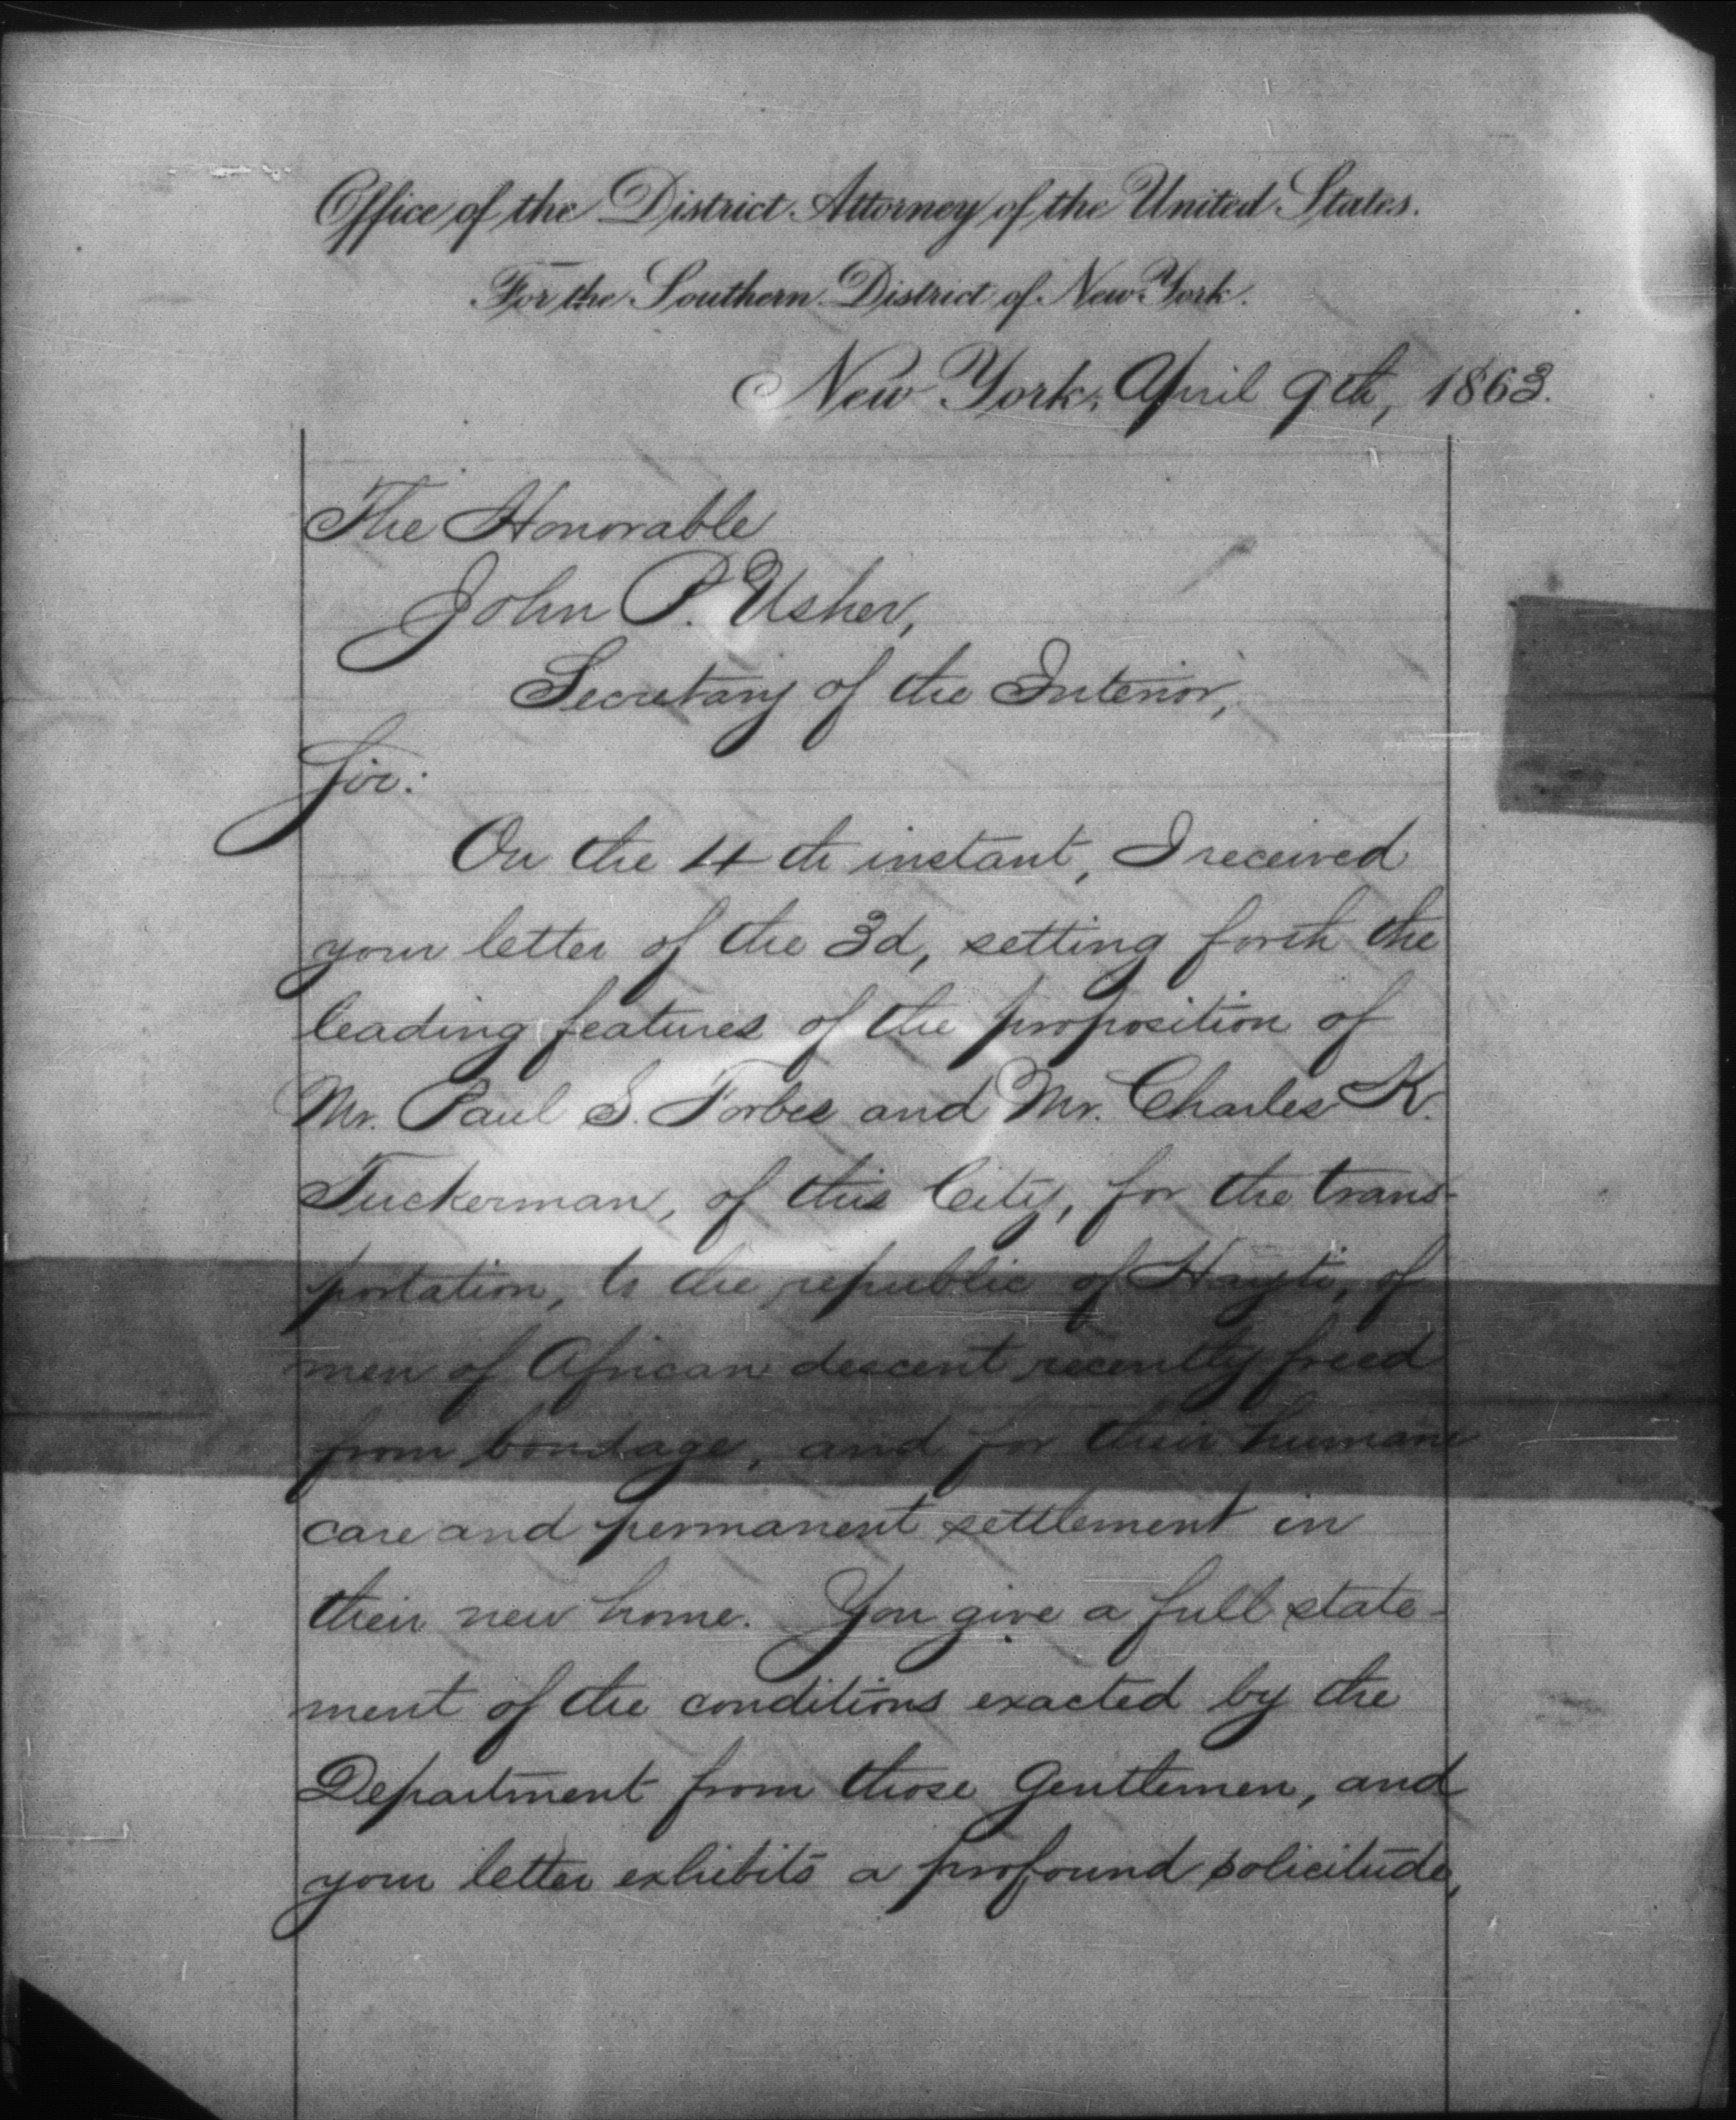 Office of the District Attorney of the United States.
For the Southern District of New York.
New York, April 9th, 1863.
The Honorable
John P. Usher,
Secretary of the Interior,
Sir:
On the 4th instant, I received
your letter of the 3d, setting forth the
leading features of the proposition of
Mr. Paul S. Forbes and Mr. Charles K.
Tuckerman, of this City, for the trans-
portation, to the republic of Hayti, of
men of African descent recently freed
from bondage, and for their humane
care and permanent settlement in
their new home. You give a full state-
ment of the conditions exacted by the
Department from those gentlemen, and
your letter exhibits a profound solicitude,